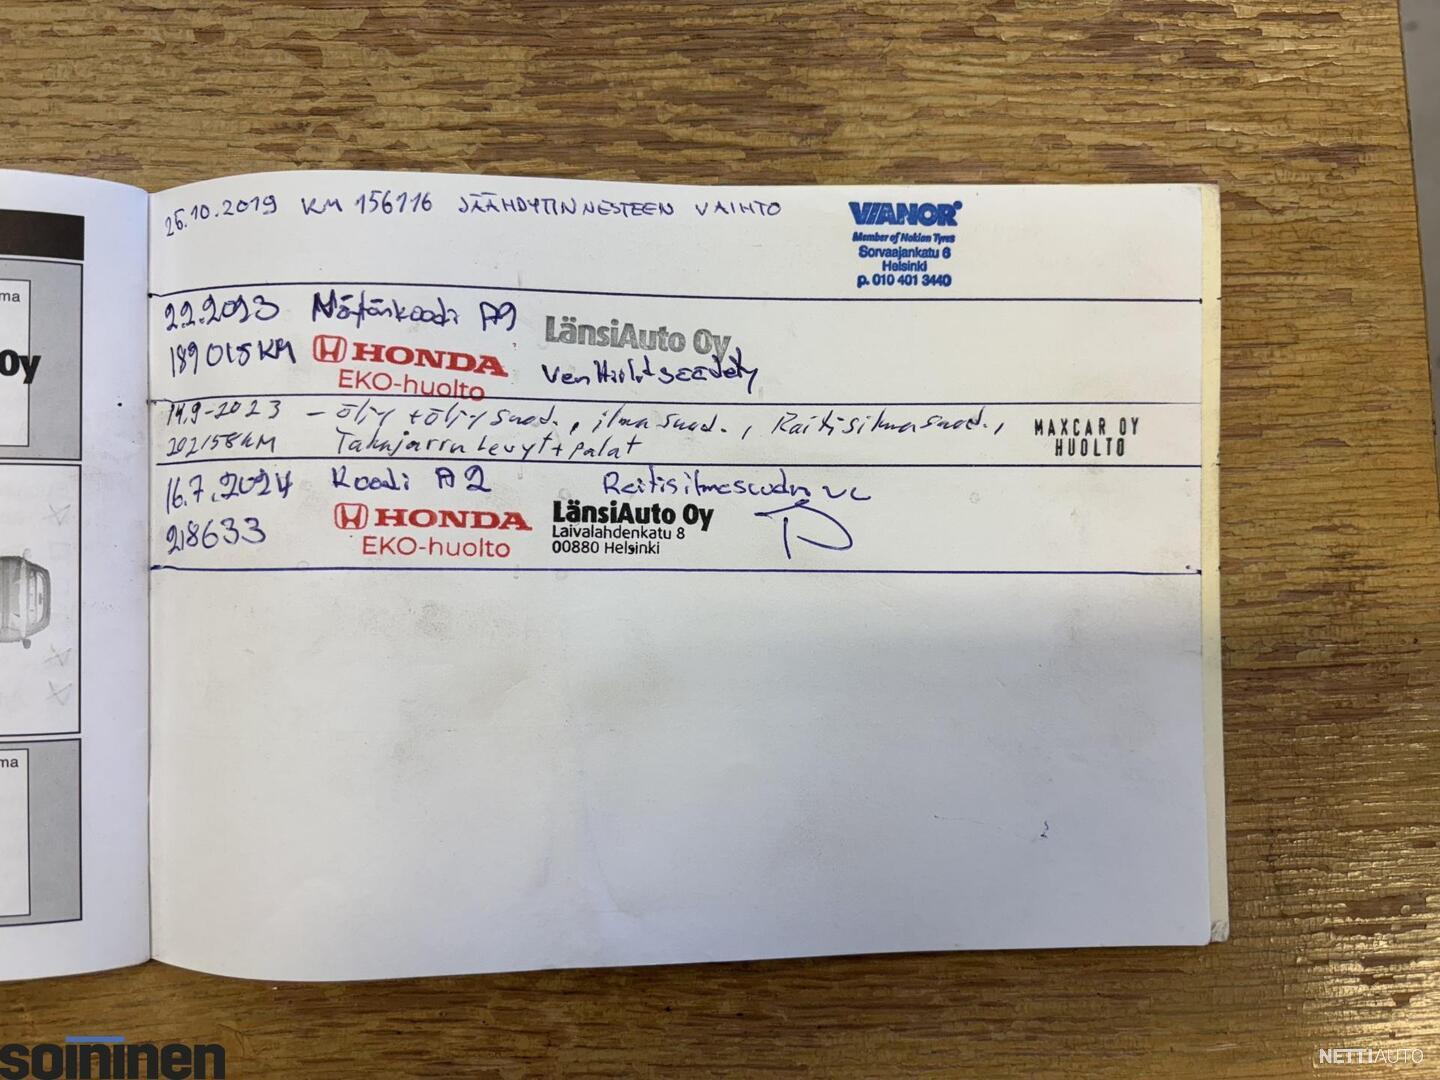 26.10.2019 KM 156116 JÄÄHDYTINNESTEEN VAIHTO
VIANOR
Member of Nokian Tyres
Sorvaajankatu 6
Helsinki
p. 010 401 3440
2.2.2023 Näytönkoodi A9
LänsiAuto Oy
189015KM
HONDA
EKO-huolto
Venttiilit säädetty
14.9-2023 - öljy + öljysuod., ilmasuod., Raitisilmasuod.,
202158KM Takajarru Levyt + palat
MAXCAR OY
HUOLTO
16.7.2024 Koodi A2
218633
HONDA
EKO-huolto
LänsiAuto Oy
Laivalahdenkatu 8
00880 Helsinki
ma
Oy
ma
soininen
NETTIAUTO